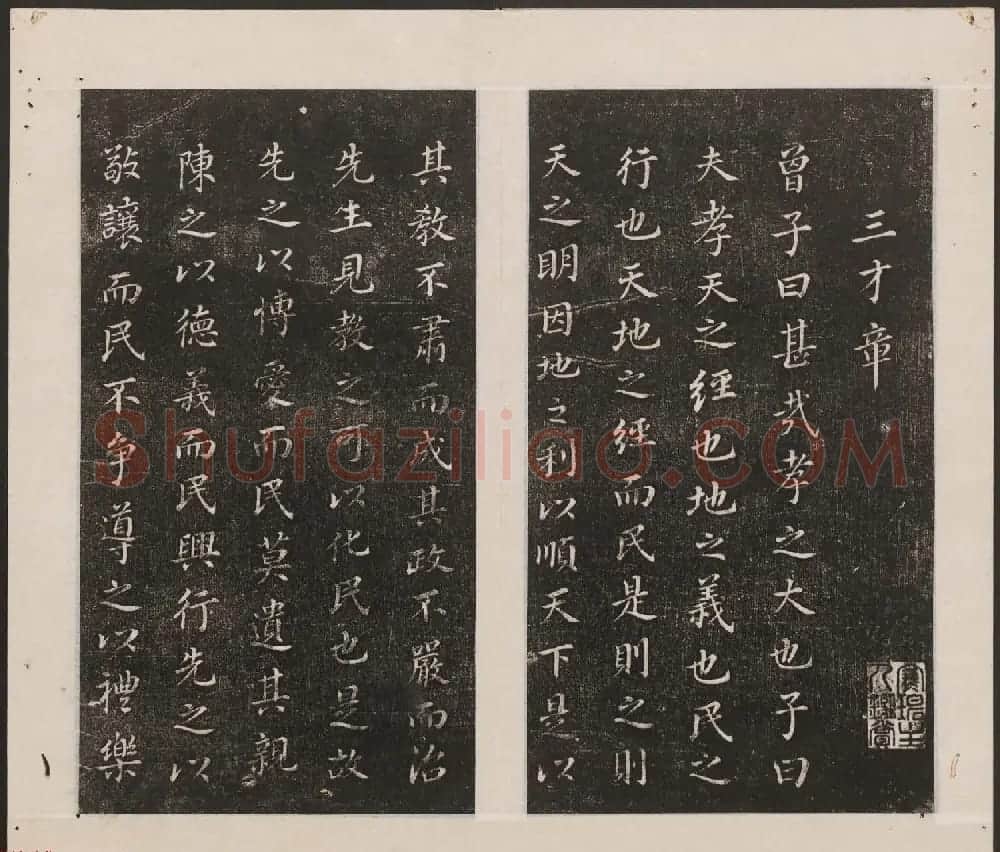 三才章
曾子曰甚哉孝之大也子曰
夫孝天之經也地之義也民之
行也天地之經而民是則之則
天之眀因地之利以順天下是以
其教不肅而成其政不嚴而治
先生見教之可以化民也是故
先之以博愛而民莫遺其親
陳之以德義而民興行先之以
敬讓而民不争導之以禮樂
Shufaziliao.COM